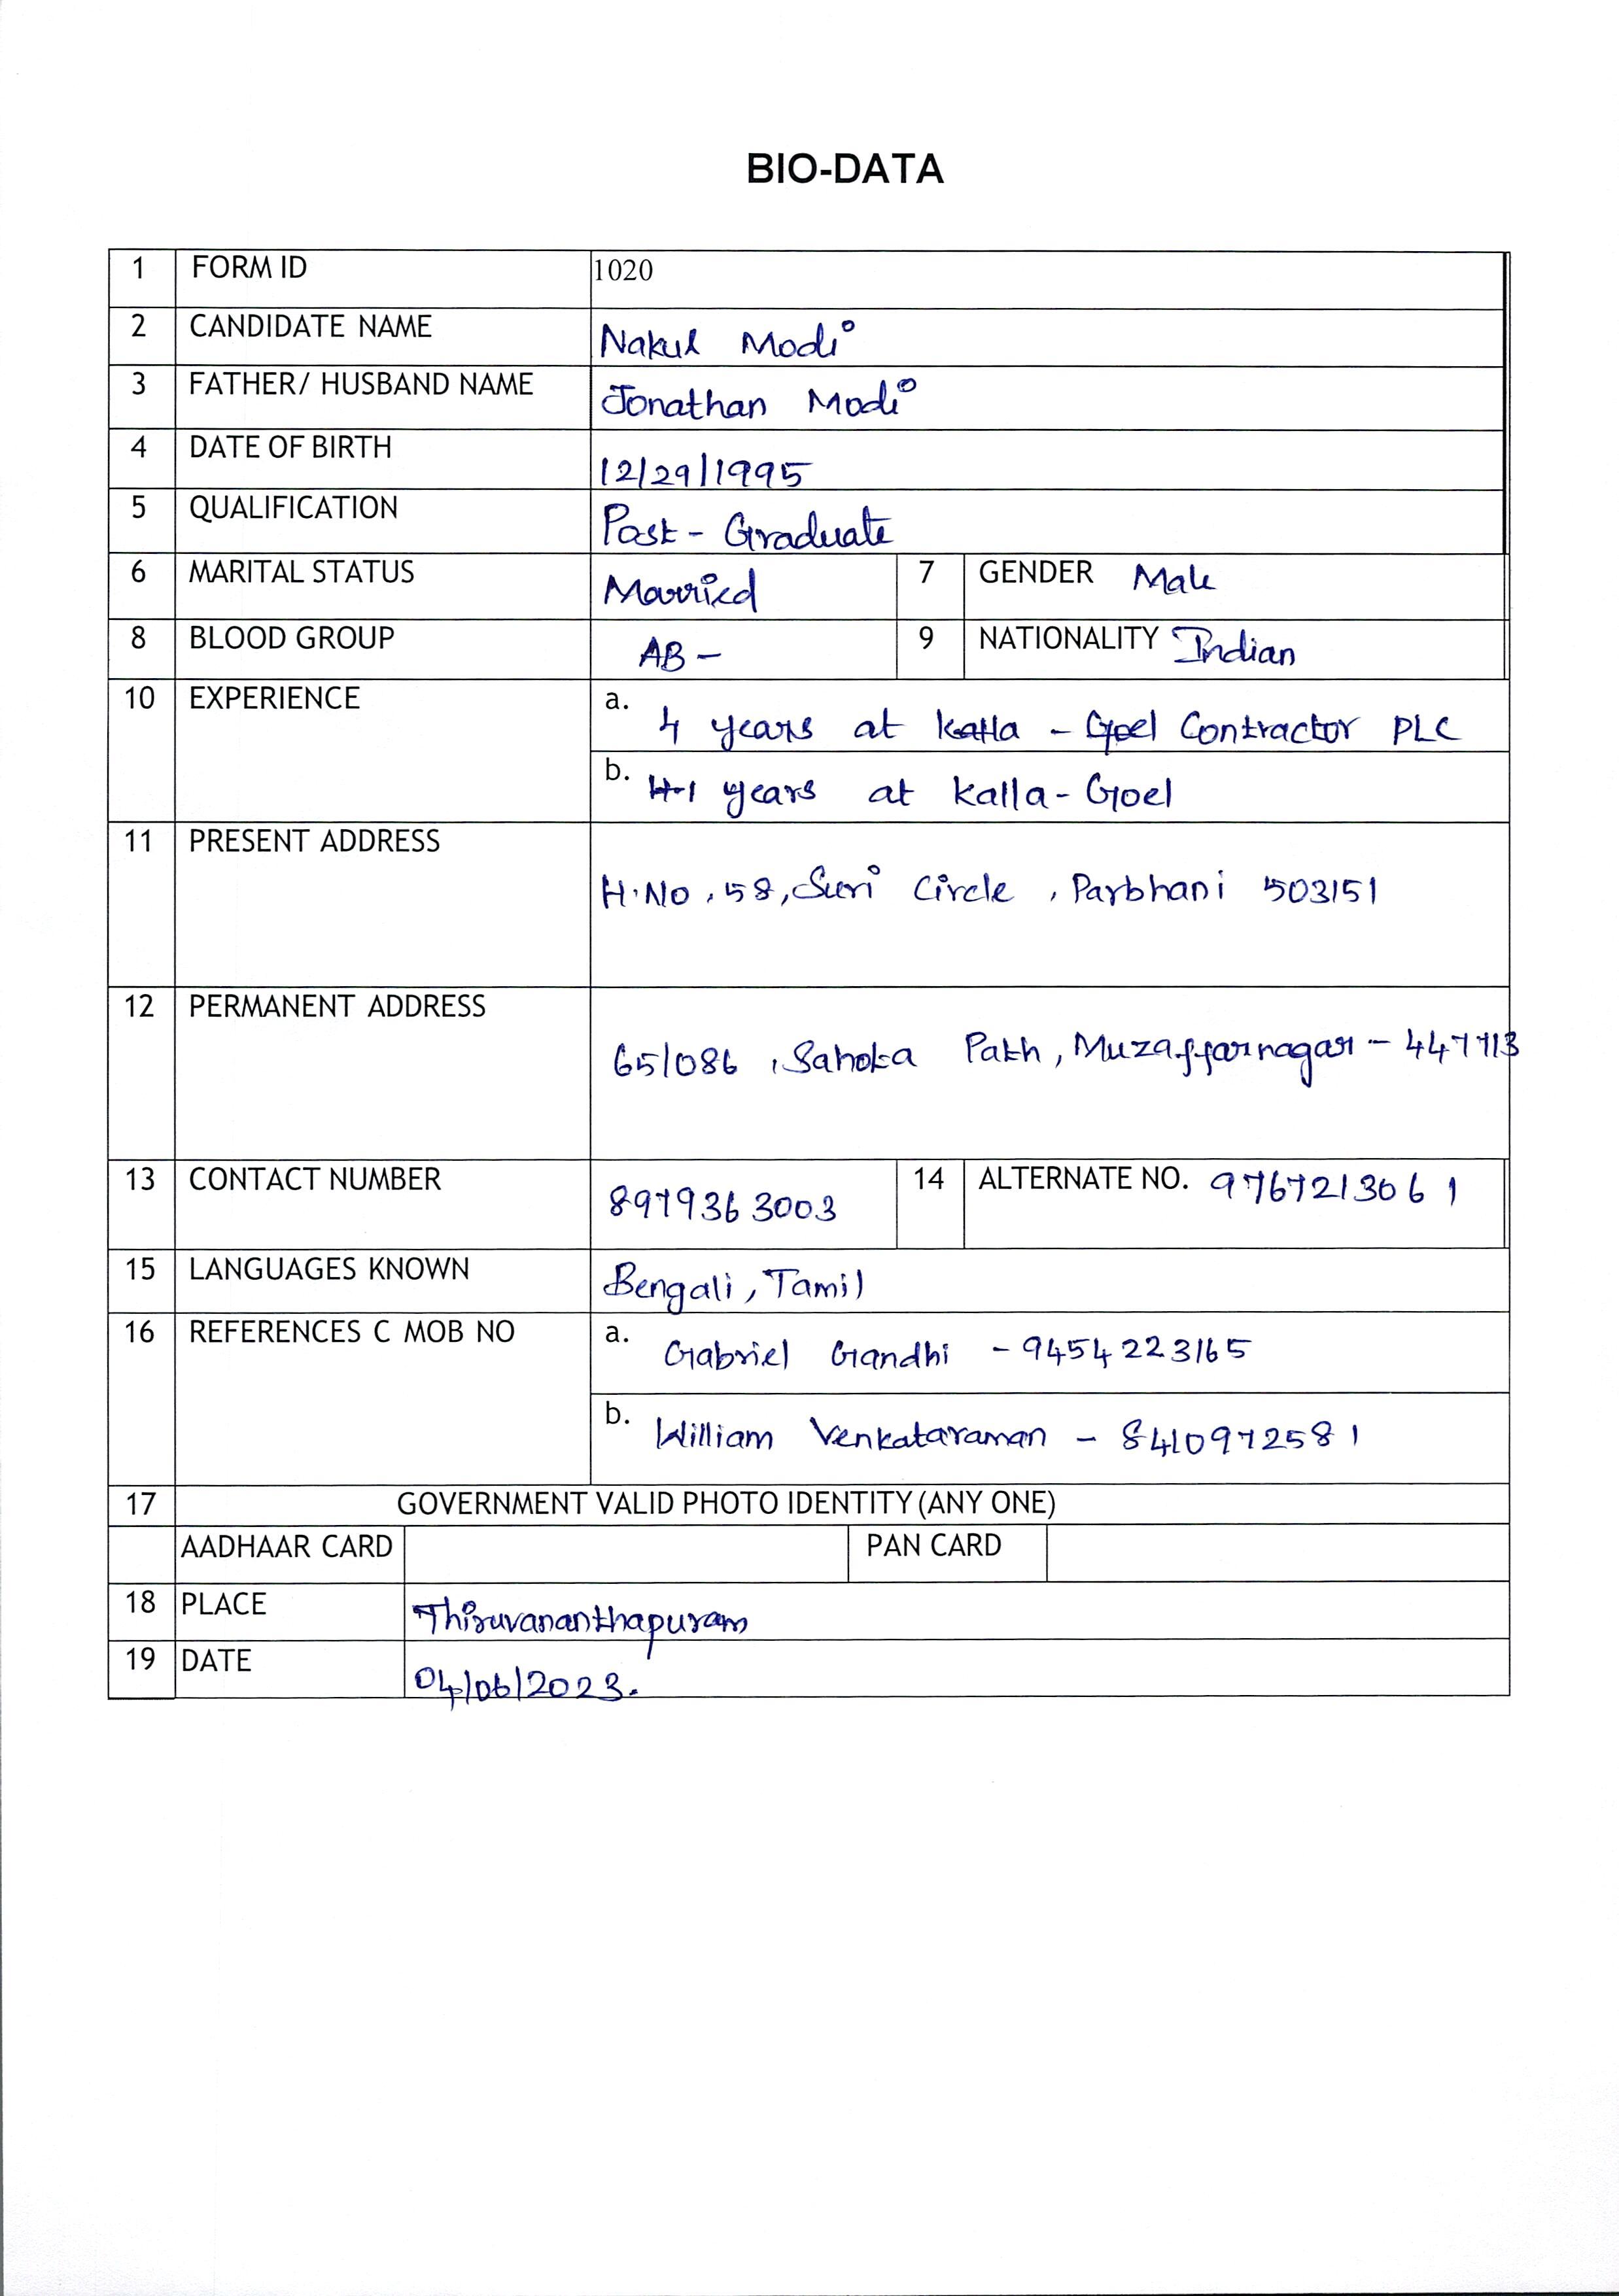 BIO-DATA
1 FORM ID 1020
2 CANDIDATE NAME Nakul Modi
3 FATHER/ HUSBAND NAME Jonathan Modi
4 DATE OF BIRTH 12/29/1995
5 QUALIFICATION Post - Graduate
6 MARITAL STATUS Married 7 GENDER Male
8 BLOOD GROUP AB - 9 NATIONALITY Indian
10 EXPERIENCE a. 4 years at Kalla - Goel Contractor PLC
b. 1 years at Kalla - Goel
11 PRESENT ADDRESS
H.No, 58, Suri Circle, Parbhani 503151
12 PERMANENT ADDRESS
65/086, Path, Muzaffarnagar - 447713
13 CONTACT NUMBER 8979363003 14 ALTERNATE NO. 9767213061
15 LANGUAGES KNOWN Bengali, Tamil
16 REFERENCES C MOB NO a. Gabriel Gandhi - 9454223165
b. William Venkataraman - 8410972581
17 GOVERNMENT VALID PHOTO IDENTITY (ANY ONE)
AADHAAR CARD PAN CARD
18 PLACE Thiruvananthapuram
19 DATE 04/06/2023.